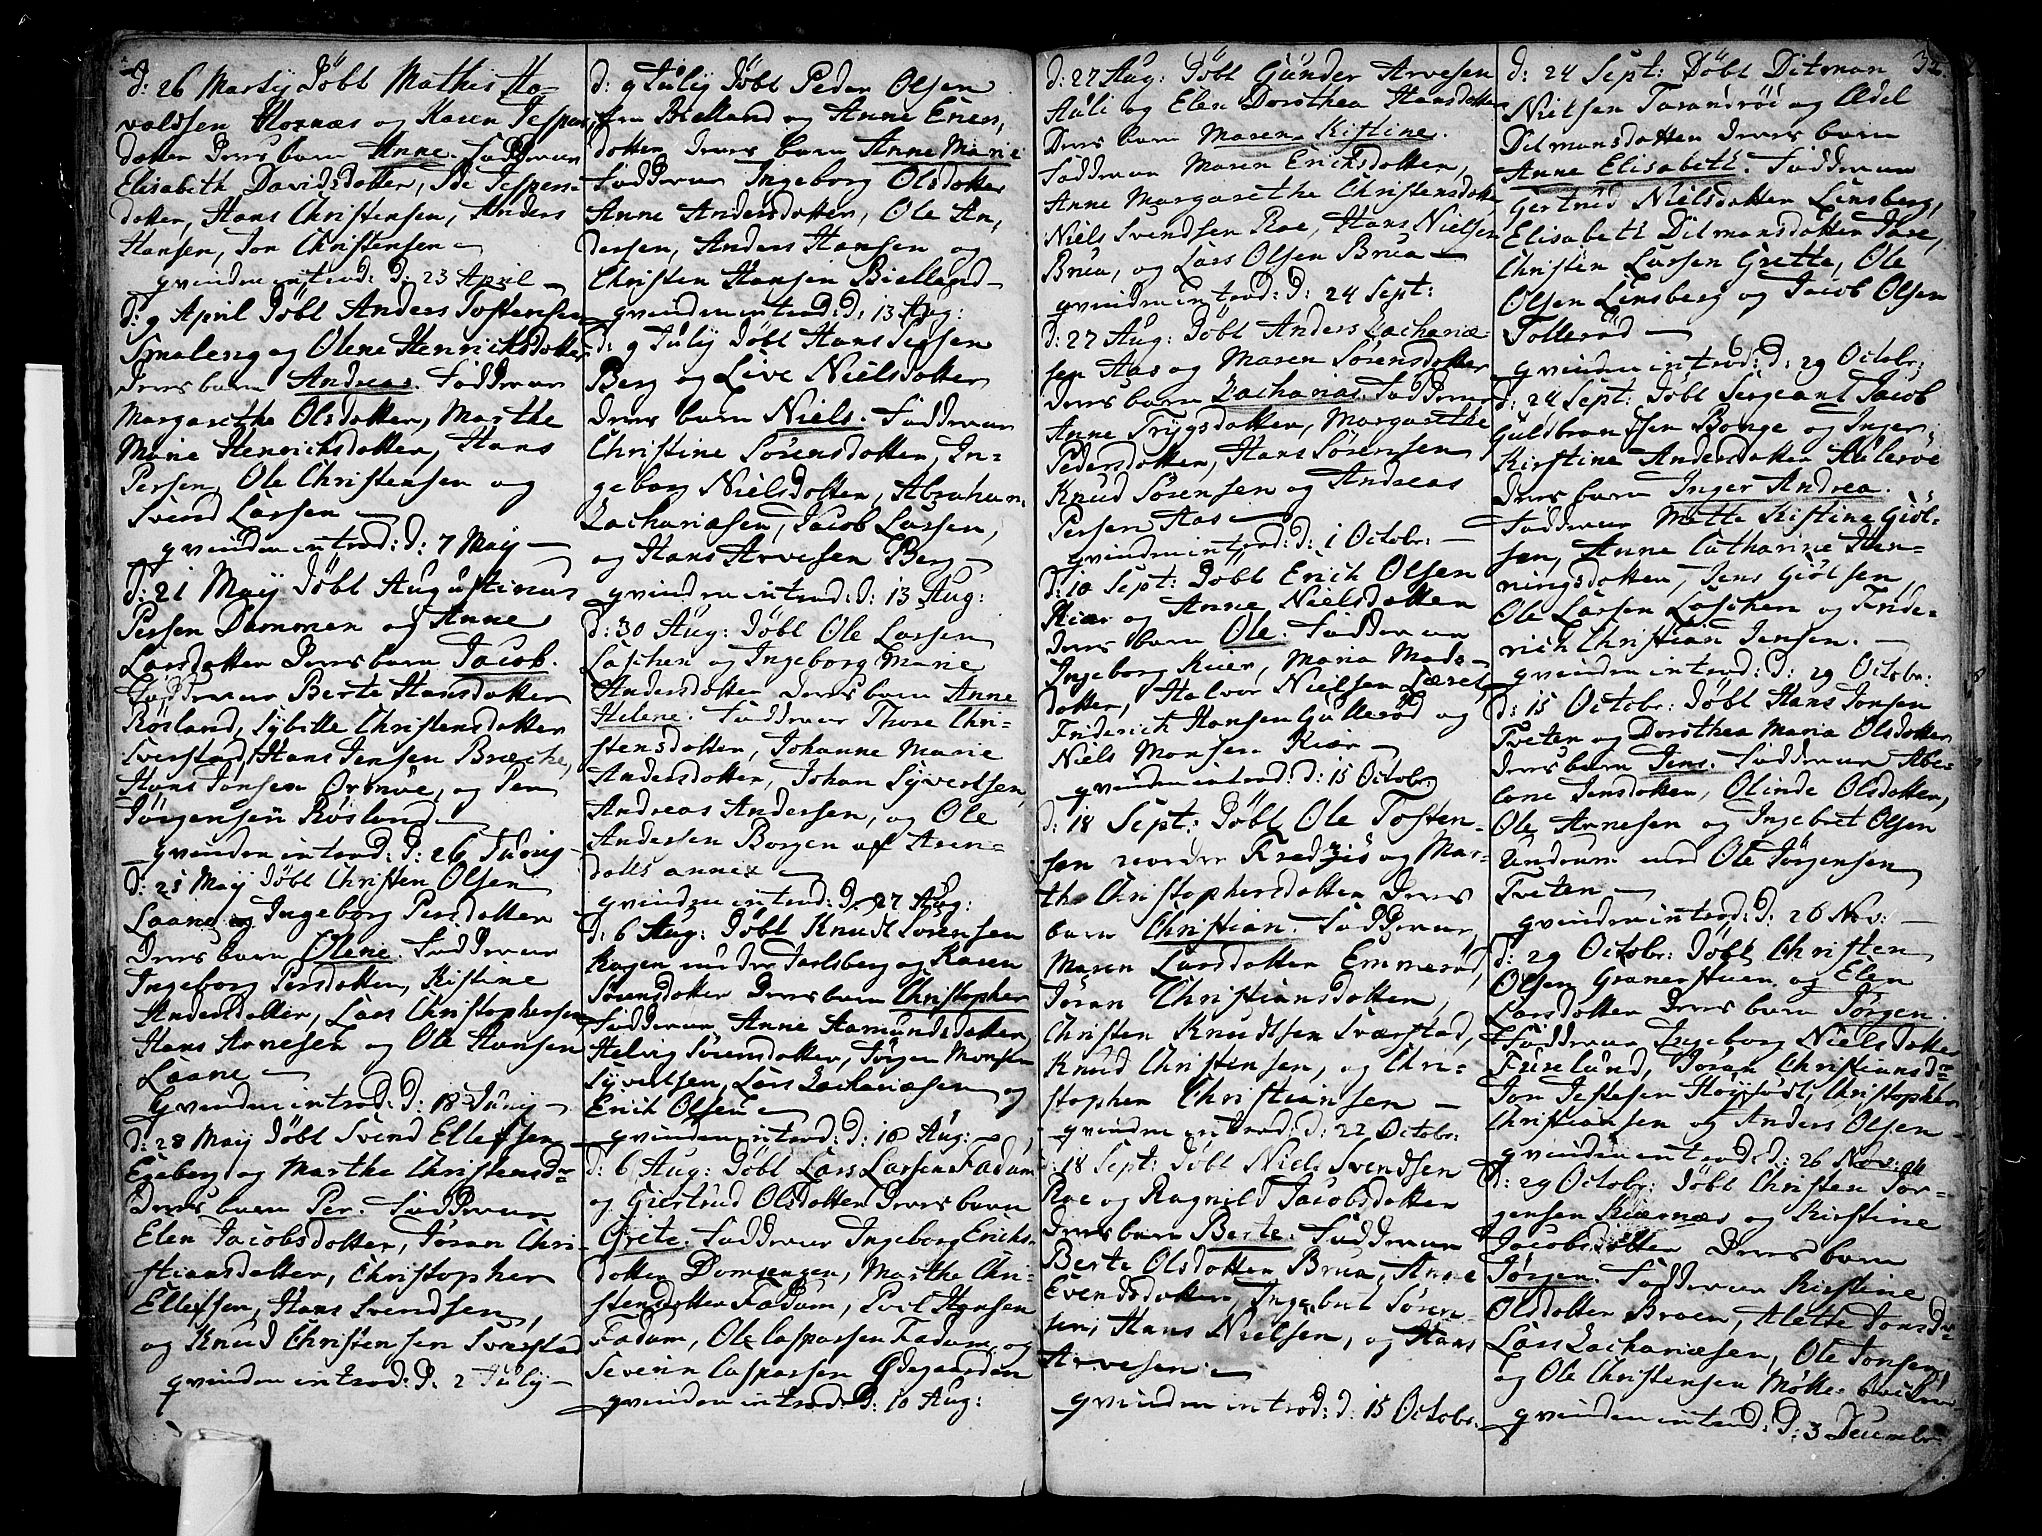 d: 26 Martij döbt Mathis Ha-
valdsen Hornæs og Karen Jespers
dotter deres barn Anne. Faddere
Elisabeth Davidsdotter, Ide Jespers-
dotter, Hans Christensen, Anders
Hansen, Jon Christensen
qvinden introd: d: 23 April
d: 9 April döbt Anders Tostensen
Smaleng og Olene Henrichsdotter
deres barn Andreas. Faddere
Margarethe Olsdotter, Marthe
Marie Henrichsdotter, Hans
Persen, Ole Christensen og
Svend Larsen
qvinden introd: d: 7 Maij
d: 21 Maij döbt Augustinus
Persen Dammen og Anne
Larsdotter deres barn Jacob.
Faddere Berte Hansdotter
Rösland, Sybille Christensdotter
Sverstad, Hans Jensen Bræche,
Hans Jonsen Orsnæ, og Per
Jörgensen Rösland
qvinden introd: d: 26 Junij
d: 25 Maij döbt Christen Olsen
Laane og Ingeborg Persdotter
deres barn Olene. Faddere
Ingeborg Persdotter, Kistine
Andersdotter, Lars Christophersen
Hans Arnesen og Ole Hansen
Laane
qvinden introd: d: 18 Junij
d: 28 Maij döbt Svend Ellefsen
Egeberg og Marthe Christensd:
deres barn Per. Faddere
Elen Jacobsdotter, Joran Chri-
stiansdotter, Christopher
Ellefsen, Hans Svendsen,
og Knud Christensen Sverstad
qvinden introd: d: 2 Julij
d: 9 Julij döbt Peder Olsen
Bielland og Anne Eners,
dotter deres barn Anne Marie
Faddere Ingeborg Olsdotter
Anne Andersdotter, Ole An,
dersen, Anders Hansen og
Christen Hansen Bielland
qvinden introd: d: 13 Aug:
d: 9 Julij döbt Hans
Berg og Live Nielsdotter
deres barn Niels. Faddere
Christine Sörensdotter, In-
geborg Nielsdotter, Abraham
Zachariasen, Jacob Larsen,
og Hans Arvesen Berg
qvinden introd: d: 13 Aug:
d: 30 Aug: döbt Ole Larsen
Laschen og Ingeborg Marie
Andersdotter deres barn Anne
Helene. Faddere Thore Chri-
stensdotter, Johanne Marie
Andersdotter, Johan Syvertsen,
Andreas Andersen, og Ole
Andersen Borgen af Aren-
dals annex
qvinden introd: d: 27 Aug:
d: 6 Aug: döbt Knudt Sörensen
Hagen under Jarlsberg og Karen
Sörensdotter deres barn Christopher
Faddere Anne Aamundsdotter
Helvig Sörensdotter, Jörgen Monsen
Syvertsen, Lars Zachariasen og
Erich Olsen
qvinden introd: d: 10 Aug:
d: 6 Aug: döbt Lars Larsen Fadum
og Giertrud Olsdotter deres barn
Grete. Faddere Ingeborg Erichs-
dotter Domsengen, Marthe Chri-
stensdotter Fadum, Poel Hansen
Fadum, Ole Caspersen Fadum og
Severin Caspersen Ødegaarden
qvinden introd: d: 10 Aug:
d: 27 Aug: döbt Gunder Arvesen
Auli og Elen Dorothea Hansdotter
deres barn Maren Kistine.
Faddere Maren Erichsdotter,
Anne Margarethe Christensdotter
Niels Svendsen Roe, Hans Nielsen
Brua, og Lars Olsen Brua
qvinden introd: d: 24 Sept:
d: 27 Aug: döbt Anders Zacharia-
sen Aas og Maren Sörensdotter
deres barn Zacharias. Faddere
Anne Trygsdotter, Margarethe
Pedersdotter, Hans Sörensen
Knud Sörensen og Andreas
Persen Aas
qvinden introd: d: 1 Octobr:
d: 10 Sept: döbt Erich Olsen
Kiær og Anne Nielsdotter
deres barn Ole. Faddere
Ingeborg Kiær, Maria Mads-
dotter, Halvor Nielsen
Friderich Hansen Gullerød og
Niels Monsen Kiær
qvinden introd: d: 15 Octobr
d: 18 Sept: döbt Ole Tosten-
sen og Mar-
the Christophersdotter deres
barn Christian. Faddere
Maren Larsdotter Emmerød,
Joran Christiansdotter,
Christen Knudtsen Sverstad,
Knud Christensen, og Chri-
stopher Christiansen
qvinden introd: d: 22 Octobr:
d: 18 Sept: döbt Niels Svendsen
Roe og Ragnild Jacobsdotter
deres barn Berte. Faddere
Berte Olsdotter Brua, Anne
Evendsdotter, Ingebret Sören-
sen, Hans Nielsen, og Hans
Arvesen
qvinden introd: d: 15 Octobr:
32
d: 24 Sept: döbt Ditman
Nielsen Taranrød og Edel
Ditmansdotter deres barn
Anne Elisabeth. Faddere
Gertrud Nielsdotter Linsberg,
Elisabeth Ditmansdotter Jare,
Christen Larsen Grette, Ole
Olsen Linsberg og Jacob Olsen
Tollerød
qvinden introd: d: 29 Octobr:
d: 24 Sept: döbt Sergeant Jacob
Guldbrandsen Borge og Inger
Kirstine Andersdotter Aulerød
deres barn Inger Andrea.
Faddere Mette Kistine Giöl-
sen, Anne Catharine Hen-
ningsdotter, Jens Giölsen,
Ole Larsen Laschen og Fride-
rich Christian Jensen.
qvinden introd: d: 29 Octobr:
d: 15 Octobr: döbt Hans Jonsen
Tveten og Dorothea Maria Olsdotter
deres barn Jens. Faddere Abe-
lone Jensdotter, Olinde Olsdotter,
Ole Arnesen og Ingebret Olsen
Undrum med Ole Jörgensen
Tveten
qvinden introd: d: 26 Nov:
d: 29 Octobr: döbt Christen
Olsen Granerstuen og Elen
Larsdotter deres barn Jörgen.
Faddere Ingeborg Nielsdotter
Furelund, Joran Christiansd:
Jon Jespesen Höyjordt, Christopher
Christiansen og Anders Olsen
qvinden introd: d: 26 Nov:
d: 29 Octobr: döbt Christen Jör-
gensen Kiærnæs og Kirstine
Jacobsdotter deres barn
Jörgen. Faddere Kirstine
Olsdotter Broen, Alette Jonsd:
Lars Zachariasen, Ole Jonsen
og Ole Christensen
qvinden introd: d: 3 Decembr: